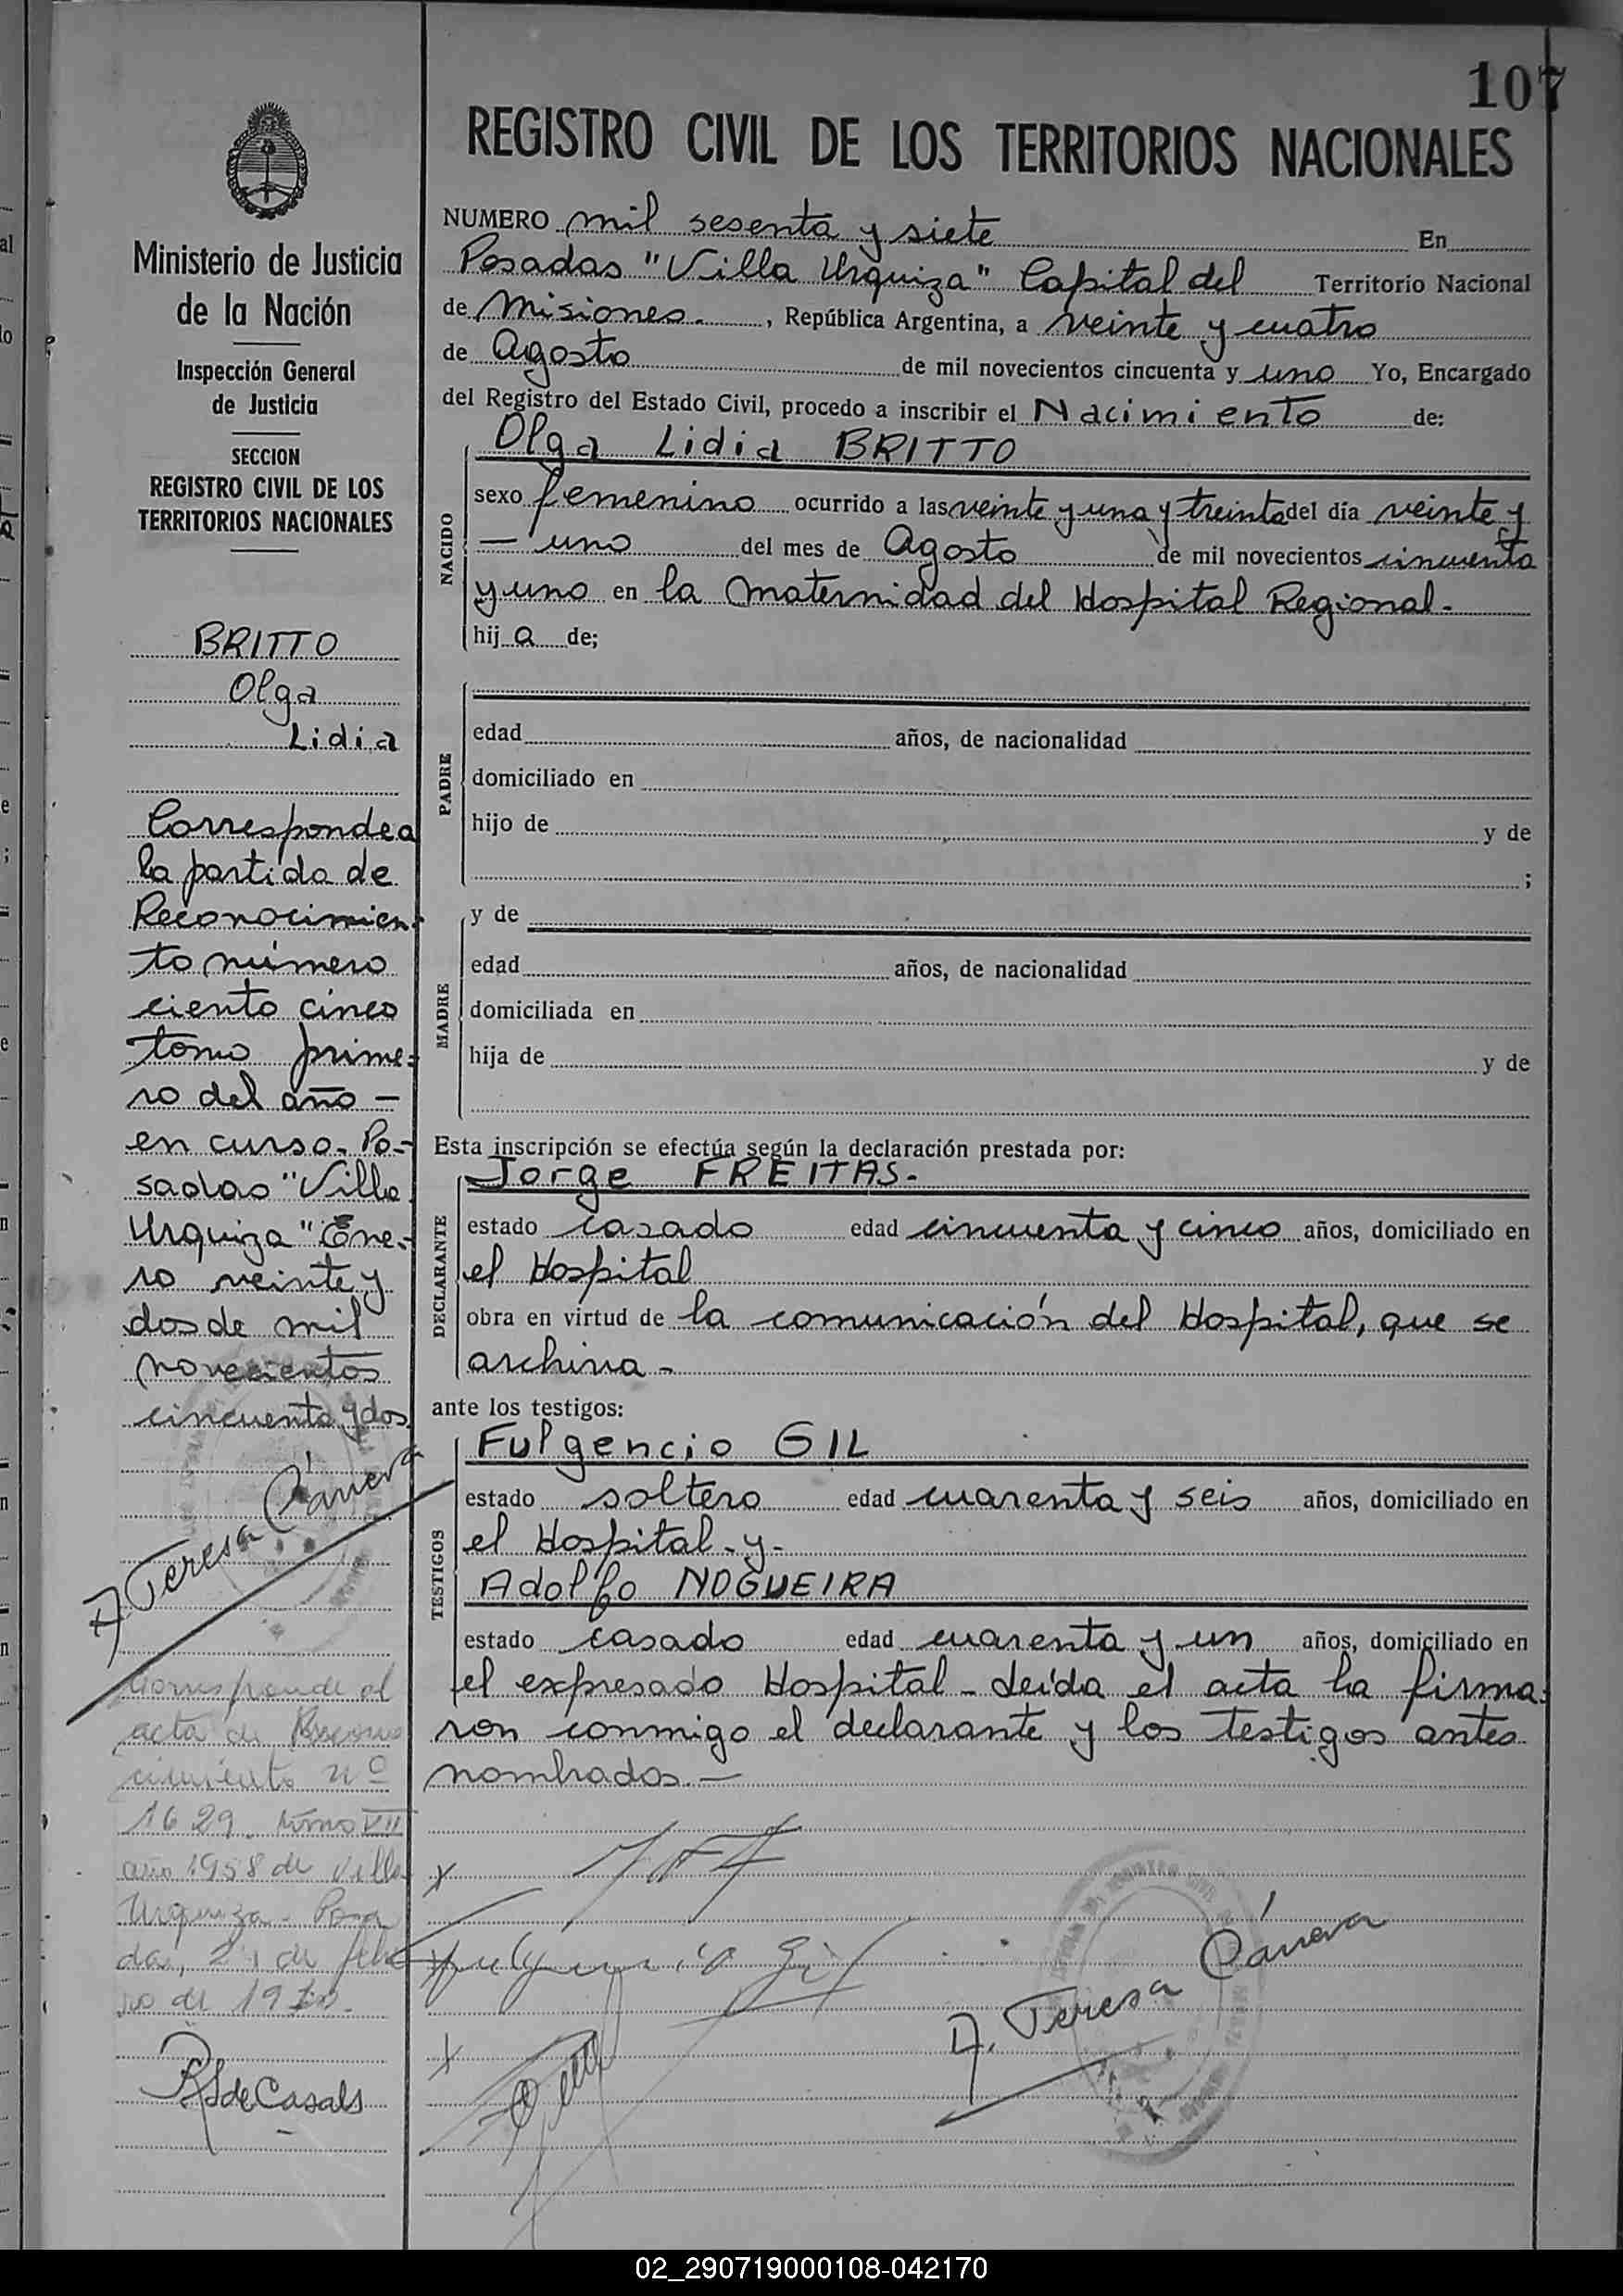 107
REGISTRO CIVIL DE LOS TERRITORIOS NACIONALES
Ministerio de Justicia
de la Nación
Inspección General
de Justicia
SECCION
REGISTRO CIVIL DE LOS
TERRITORIOS NACIONALES
BRITTO
Olga
Lidia
Corresponde a
la partida de
Reconocimien-
to número
ciento cinco
tomo prime-
ro del año -
en curso. Po-
sadas "Villa
Urquiza" Ene-
ro veinte y
dos de mil
novecientos
cincuenta y dos
A. Teresa Cáneva
Corresponde al
acta de Recono
cimiento Nº
1629 tomo VII
año 1958 de Villa
Urquiza - Posa
das, de febre
ro de
RS de Casals
NUMERO mil sesenta y siete En
Posadas "Villa Urquiza" Capital del Territorio Nacional
de Misiones. , República Argentina, a veinte y cuatro
de Agosto de mil novecientos cincuenta y uno Yo, Encargado
del Registro del Estado Civil, procedo a inscribir el Nacimiento de:
Olga Lidia BRITTO
NACIDO
sexo femenino ocurrido a las veinte y una y treinta del día veinte y
- uno del mes de Agosto de mil novecientos cincuenta
y uno en la Maternidad del Hospital Regional.
hij a de;
PADRE
edad años, de nacionalidad
domiciliado en
hijo de y de
;
MADRE
y de
edad años, de nacionalidad
domiciliada en
hija de y de
Esta inscripción se efectúa según la declaración prestada por:
Jorge FREITAS.
DECLARANTE
estado casado edad cincuenta y cinco años, domiciliado en
el Hospital
obra en virtud de la comunicación del Hospital, que se
archiva -
ante los testigos:
Fulgencio GIL
TESTIGOS
estado soltero edad cuarenta y seis años, domiciliado en
el Hospital - y -
Adolfo NOGUEIRA
estado casado edad cuarenta y un años, domiciliado en
el expresado Hospital - Leída el acta la firma-
ron conmigo el declarante y los testigos antes
nombrados. -
x
x Fulgencio Gil
x
A. Teresa Cáneva
02_290719000108-042170